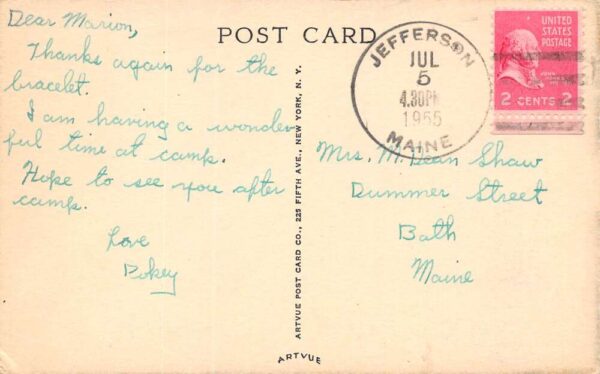 Dear Marion,
Thanks again for the
bracelet.
I am having a wonder-
ful time at camp.
Hope to see you after
camp.
Love
Pokey
POST CARD
ARTVUE POST CARD CO., 225 FIFTH AVE., NEW YORK, N. Y.
ARTVUE
JEFFERSON
JUL
5
4.30PM
1955
MAINE
UNITED
STATES
POSTAGE
2 CENTS 2
Mrs. M. Dean Shaw
Dummer Street
Bath
Maine